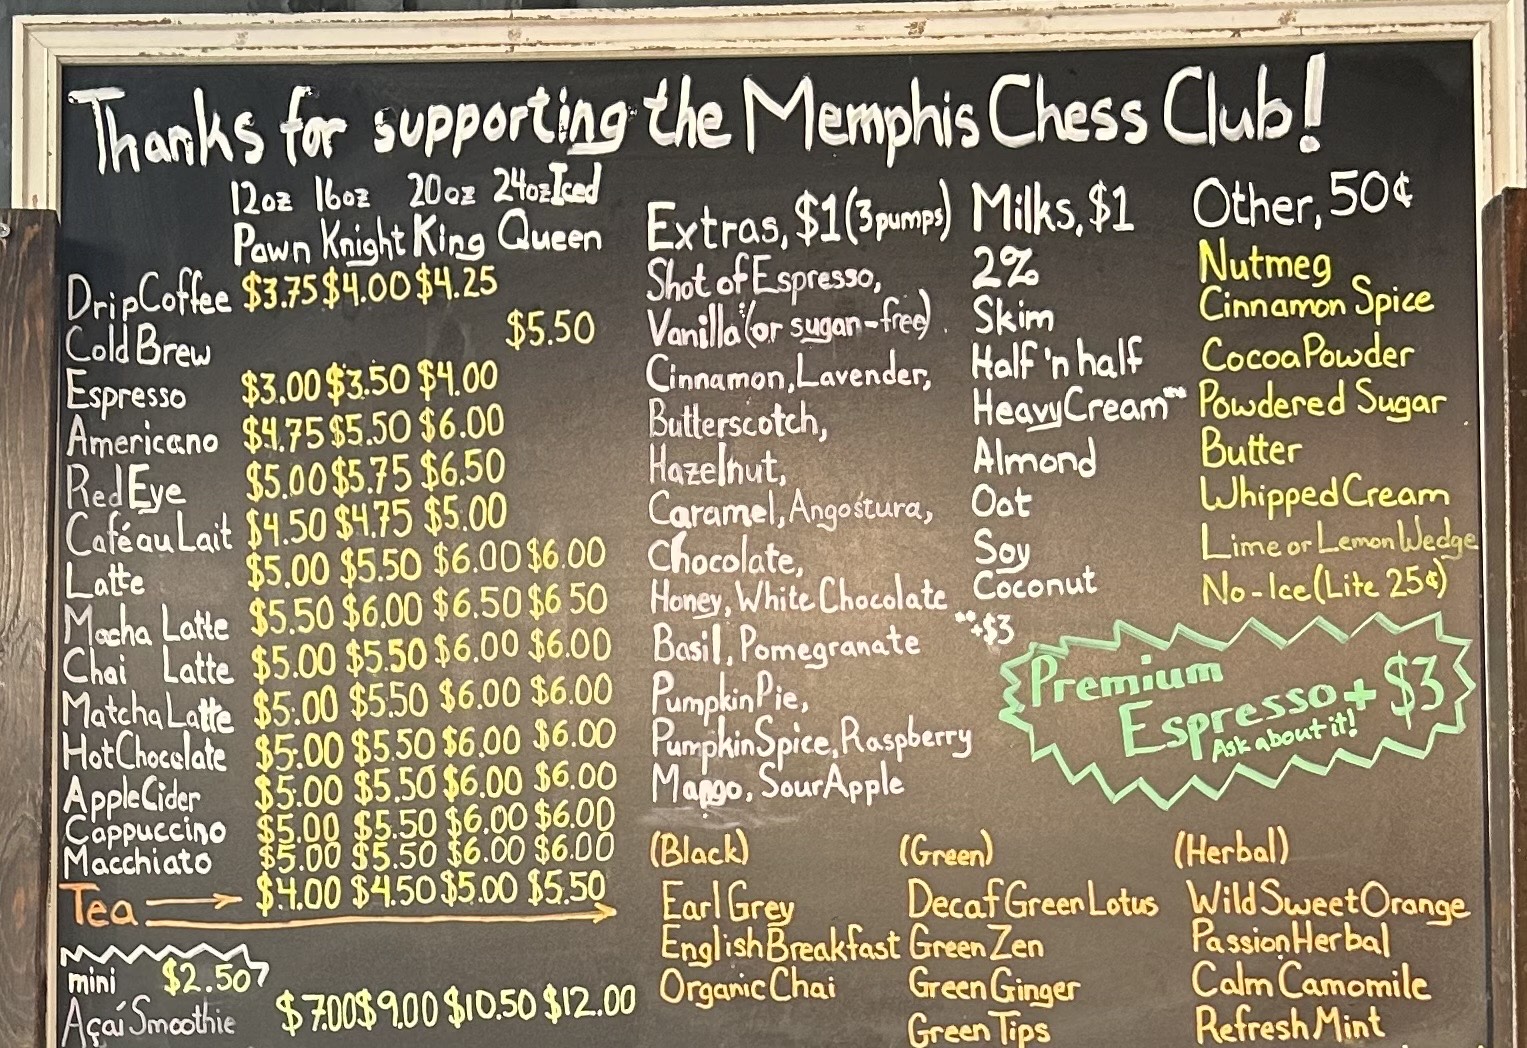 Thanks for supporting the Memphis Chess Club!
12oz 16oz 20oz 24oz Iced
Pawn Knight King Queen
Drip Coffee $3.75 $4.00 $4.25
Cold Brew $5.50
Espresso $3.00 $3.50 $4.00
Americano $4.75 $5.50 $6.00
Red Eye $5.00 $5.75 $6.50
Café au Lait $4.50 $4.75 $5.00
Latte $5.00 $5.50 $6.00 $6.00
Mocha Latte $5.50 $6.00 $6.50 $6 50
Chai Latte $5.00 $5.50 $6.00 $6.00
Matcha Latte $5.00 $5.50 $6.00 $6.00
Hot Chocolate $5.00 $5.50 $6.00 $6.00
Apple Cider $5.00 $5.50 $6.00 $6.00
Cappuccino $5.00 $5.50 $6.00 $6.00
Macchiato $5.00 $5.50 $6.00 $6.00
Tea $4.00 $4.50 $5.00 $5.50
mini $2.50
Açaí Smoothie $7.00 $9.00 $10.50 $12.00
Extras, $1 (3 pumps)
Shot of Espresso,
Vanilla (or sugar-free)
Cinnamon, Lavender,
Butterscotch,
Hazelnut,
Caramel, Angostura,
Chocolate,
Honey, White Chocolate
Basil, Pomegranate
Pumpkin Pie,
Pumpkin Spice, Raspberry
Mango, Sour Apple
Milks, $1
2%
Skim
Half 'n half
Heavy Cream**
Almond
Oat
Soy
Coconut
**+$3
Other, 50¢
Nutmeg
Cinnamon Spice
Cocoa Powder
Powdered Sugar
Butter
Whipped Cream
Lime or Lemon Wedge
No-Ice (Lite 25¢)
Premium
Espresso + $3
Ask about it!
(Black)
Earl Grey
English Breakfast
Organic Chai
(Green)
Decaf Green Lotus
Green Zen
Green Ginger
Green Tips
(Herbal)
Wild Sweet Orange
Passion Herbal
Calm Camomile
Refresh Mint